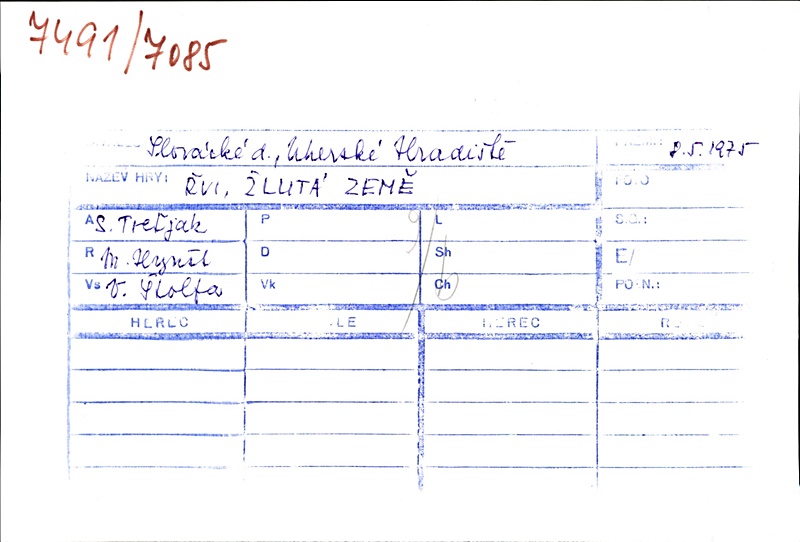 7491/7085
Slovácké d., Uherské Hradiště 8.5.1975
NÁZEV HRY: ŘVI, ŽLUTÁ ZEMĚ
A S. Treťjak P L
R M. Hynšt D Sh E/
Vs V. Štolfa Vk Ch
HEREC HEREC